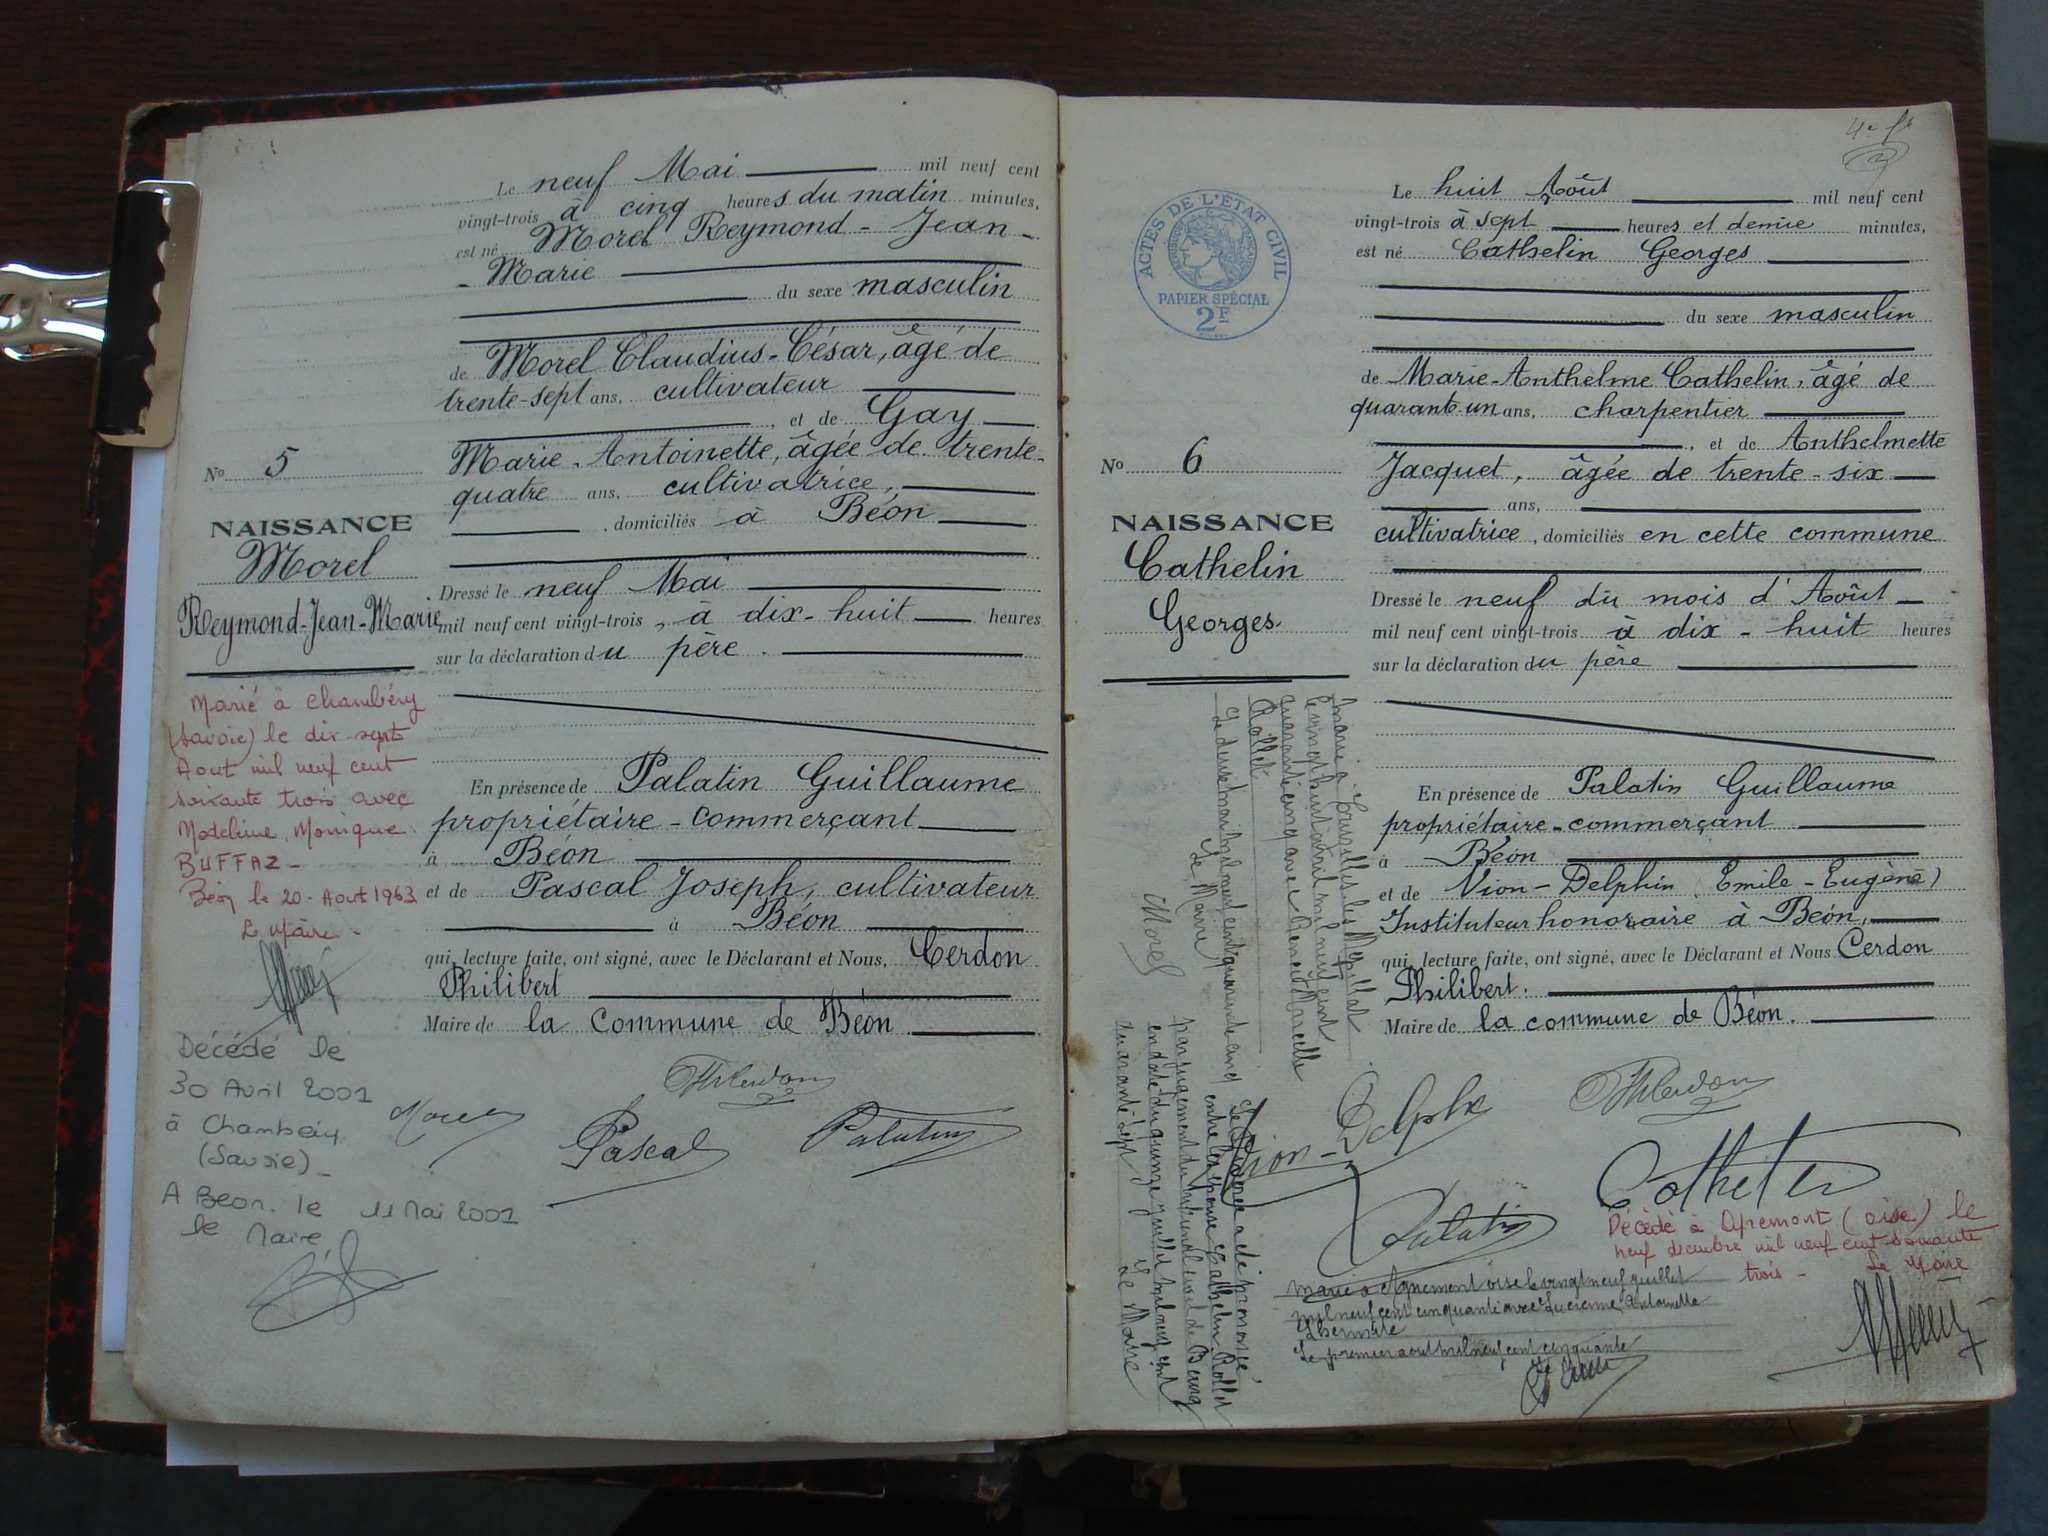 Le neuf Mai mil neuf cent
vingt-trois à cinq heures du matin minutes,
est né Morel Reymond - Jean -
- Marie
du sexe masculin
de Morel Claudius-César, âgé de
trente-sept ans, cultivateur
, et de Gay
Marie-Antoinette, âgée de trente-
quatre ans, cultivatrice,
, domiciliés à Béon
Dressé le neuf Mai
mil neuf cent vingt-trois, à dix-huit heures
sur la déclaration du père.
En présence de Palatin Guillaume
propriétaire-commerçant
à Béon
et de Pascal Joseph, cultivateur
à Béon
qui, lecture faite, ont signé, avec le Déclarant et Nous, Cerdon
Philibert
Maire de la commune de Béon
No 5
NAISSANCE
Morel
Reymond-Jean-Marie
Marié à Chambéry
(Savoie) le dix-sept
Aout mil neuf cent
soixante trois avec
Madeleine, Monique
BUFFAZ -
Béon le 20 - Aout 1963
Le Maire -
Décédé le
30 Avril 2001
à Chambéry
(Savoie) -
A Béon. le 11 Mai 2001
le Maire
Morel
Pascal
Palatin
4e
ACTES DE L'ÉTAT CIVIL
PAPIER SPÉCIAL
2F
Le huit Août mil neuf cent
vingt-trois à sept heures et demie minutes,
est né Cathelin Georges
du sexe masculin
de Marie-Anthelme Cathelin, âgé de
quarante-un ans, charpentier
, et de Anthelmette
Jacquet, âgée de trente-six
ans,
cultivatrice, domiciliés en cette commune
Dressé le neuf du mois d'Août
mil neuf cent vingt-trois à dix-huit heures
sur la déclaration du père
En présence de Palatin Guillaume
propriétaire-commerçant
à Béon
et de Vion-Delphin (Emile-Eugène)
Instituteur honoraire à Béon,
qui, lecture faite, ont signé, avec le Déclarant et Nous Cerdon
Philibert.
Maire de la commune de Béon.
No 6
NAISSANCE
Cathelin
Georges
le vingt huit avril mil neuf cent
quarante cinq avec Renée Marcelle
Rollet
Le deux mai mil neuf cent quarante cinq
Le Maire
Morel
Le Divorce a été prononcé
entre les époux Cathelin-Rollet
par jugement du tribunal civil de Bourg
en date du quinze juillet mil neuf cent
quarante sept
Le Maire
Vion-Delphin
Palatin
Cathelin
Décédé à Apremont (oise) le
neuf décembre mil neuf cent soixante
trois - Le Maire
Marié à Apremont oise le vingt neuf juillet
mil neuf cent cinquante avec Lucienne Antoinette
Lhermite
Le premier aout mil neuf cent cinquante